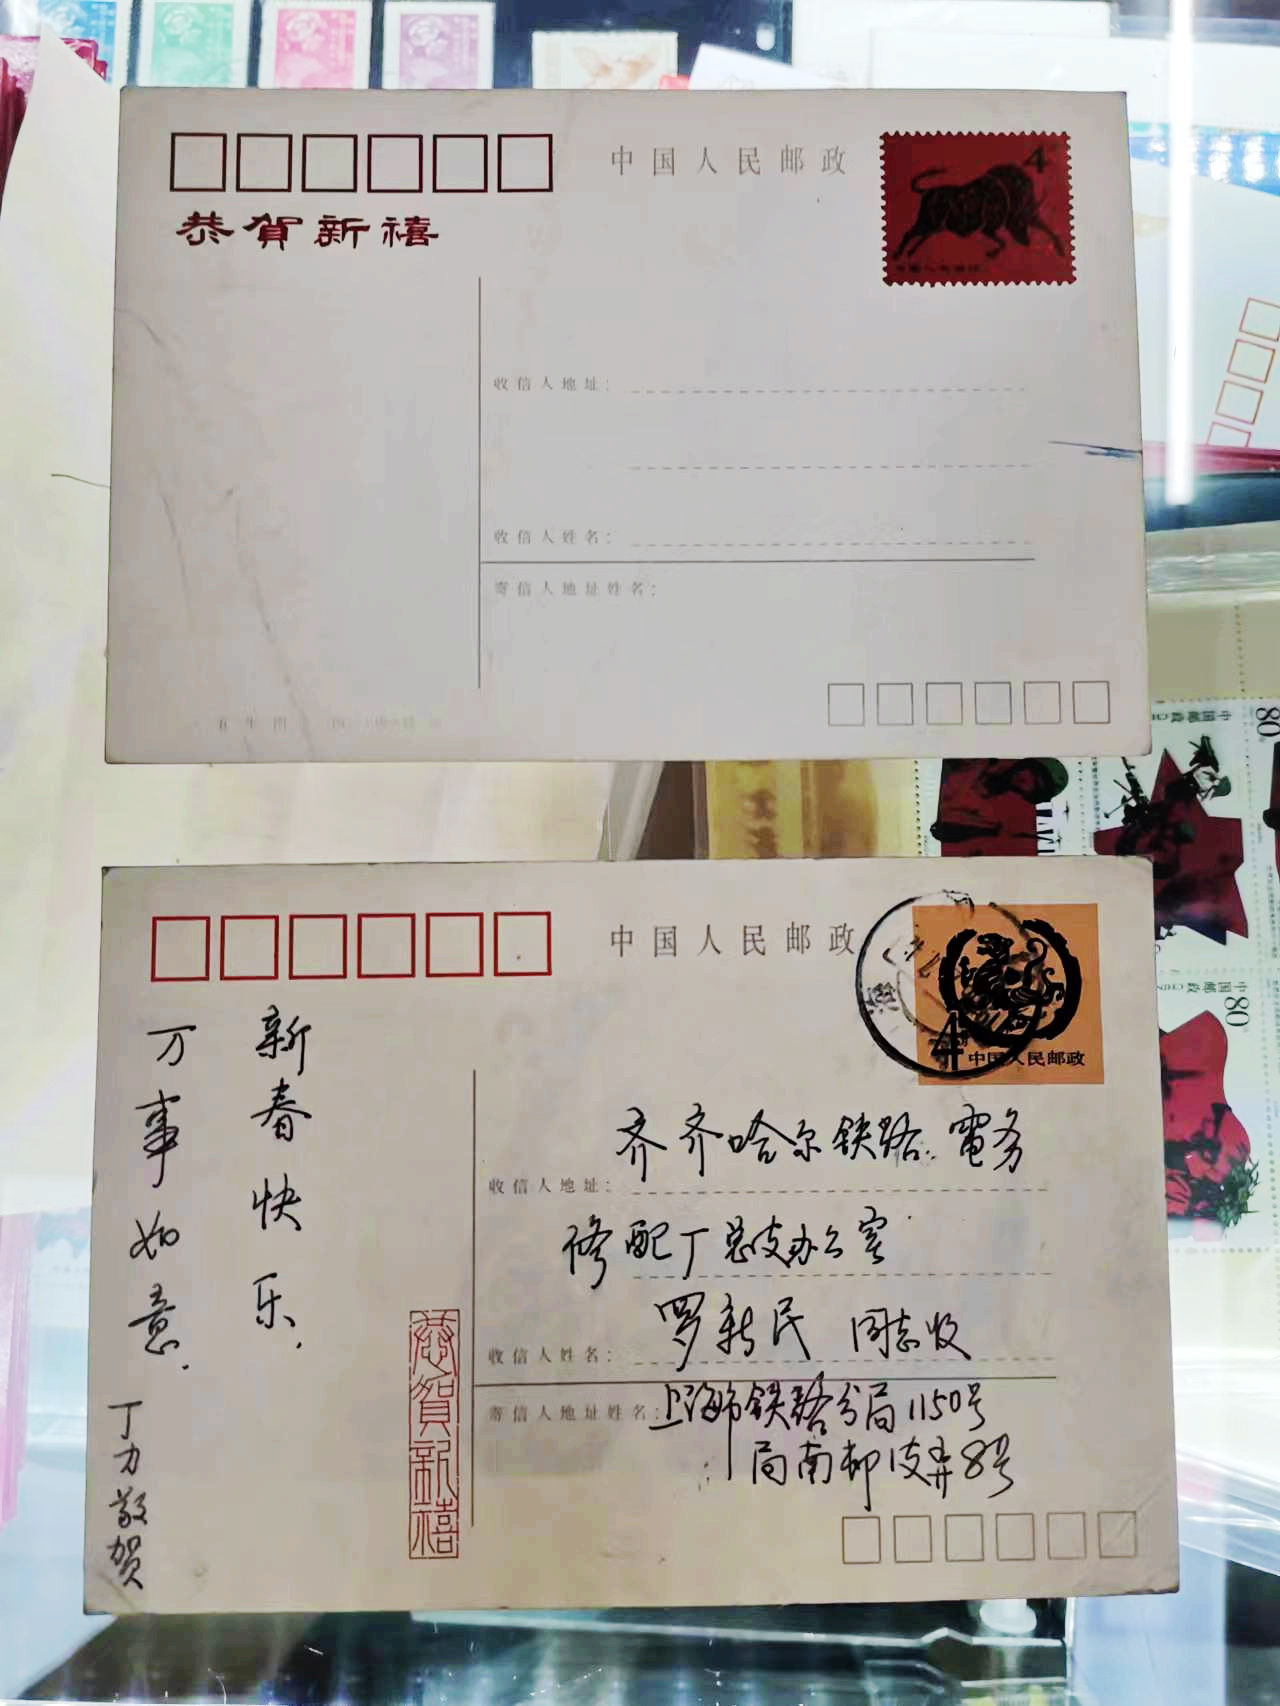 中国人民邮政
4
恭賀新禧
收信人地址：
收信人姓名：
寄信人地址姓名：
中国邮政
80
中国邮政
80
中国人民邮政
4
中国人民邮政
新春快乐.
万事如意.
丁力敬贺
恭賀新禧
齐齐哈尔铁路 電务
收信人地址：
修配厂总支办公室
罗新民 同志收
收信人姓名：
寄信人地址姓名：
上海市铁路分局1150号